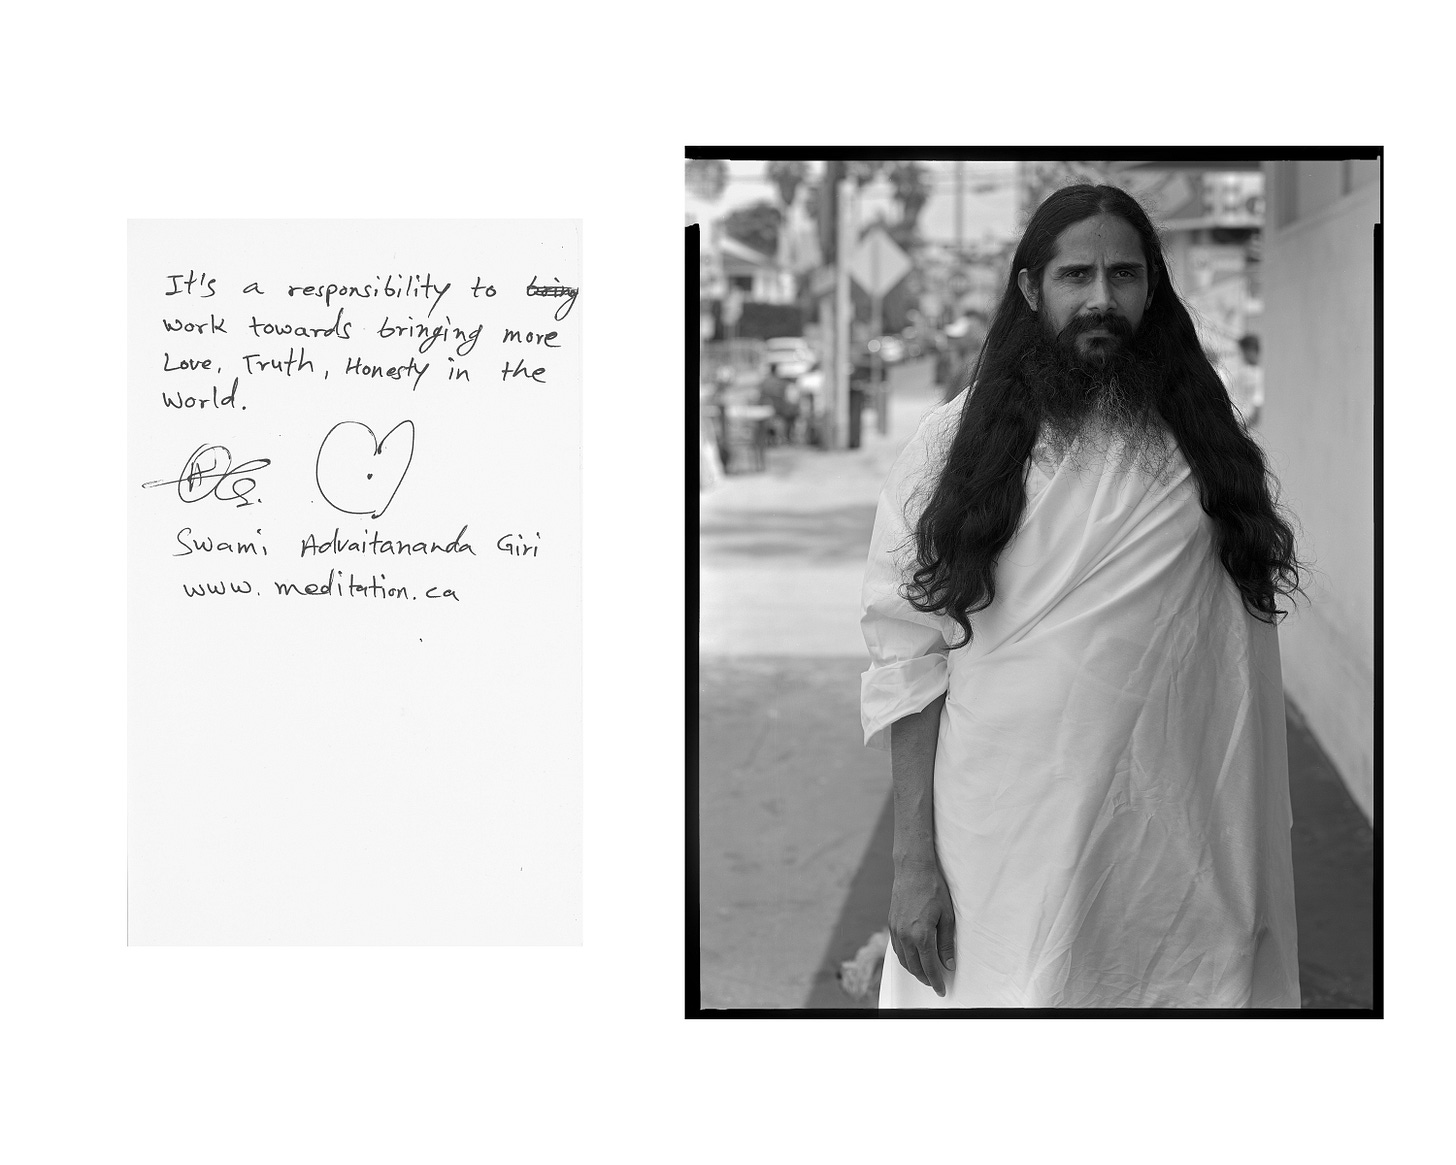 It's a responsibility to being
work towards bringing more
Love, Truth, Honesty in the
World.
Swami Advaitananda Giri
www.meditation.ca